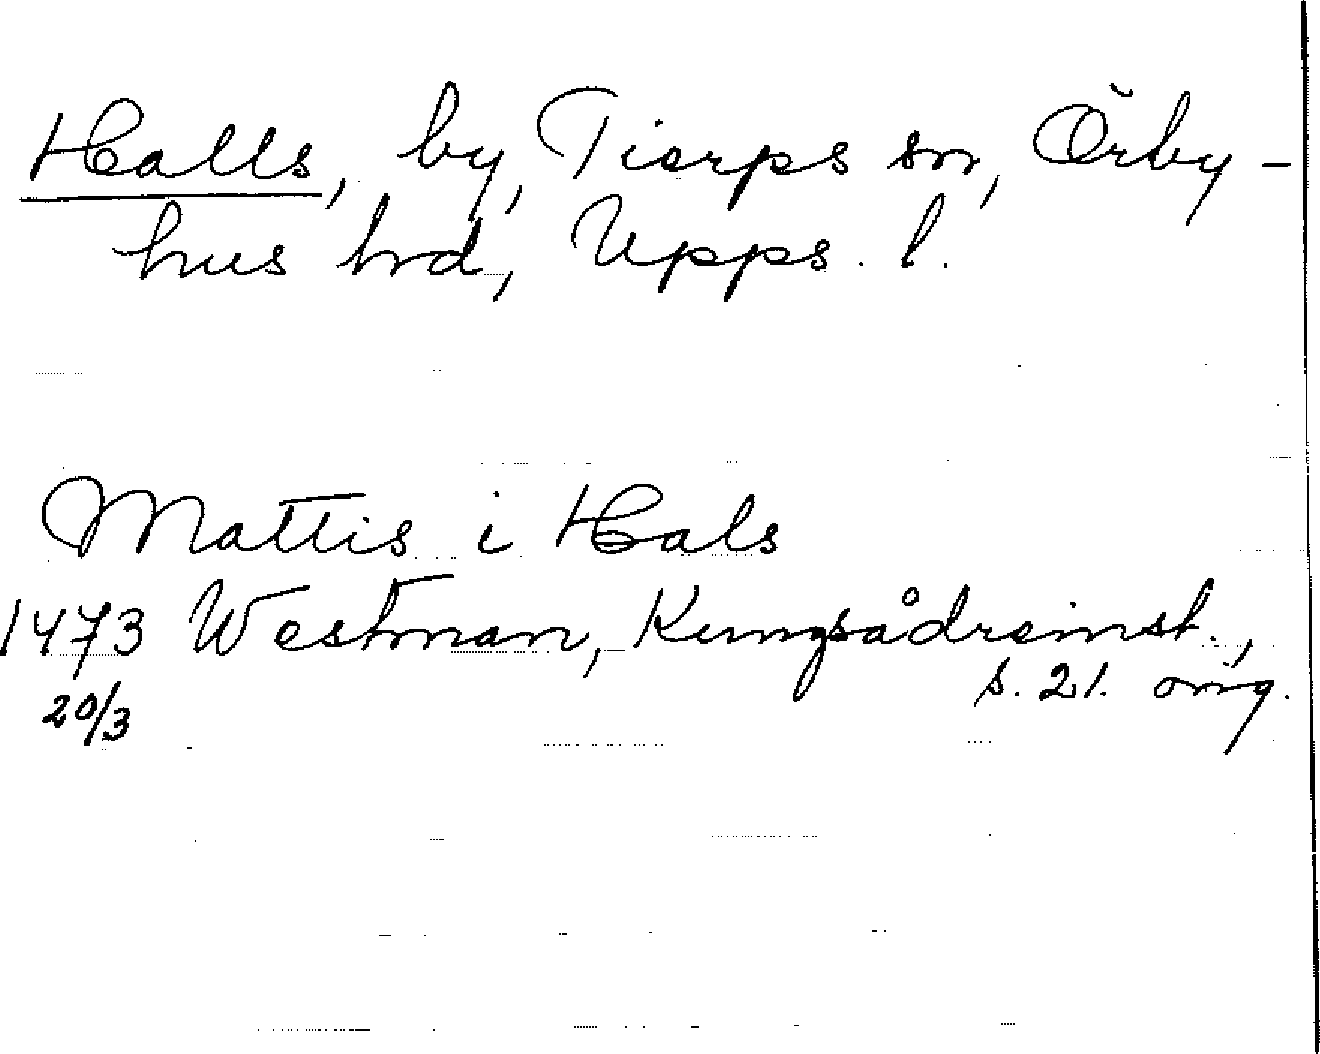 Halls, by, Tierps sn, Örby-
hus hrd, Upps. l.
Mattis i Hals
1473 Westman, Kungsådreinst.,
20/3 s. 21. orig.